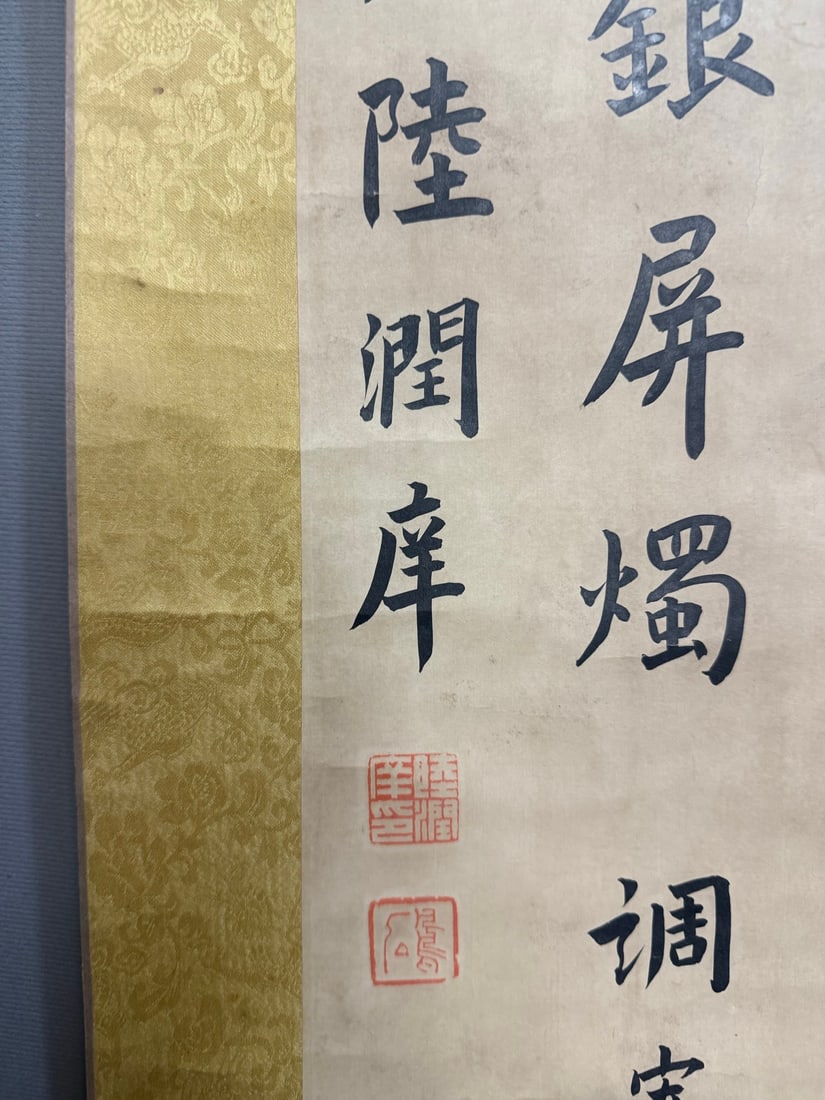 銀屏燭
調
陸潤庠
陸潤庠印